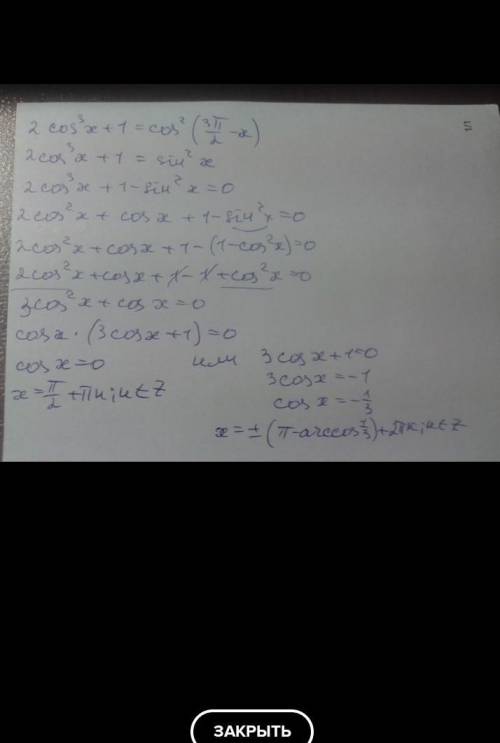 5
2cos³x + 1 = cos²(3π/2 - x)
2cos³x + 1 = sin²x
2cos³x + 1 - sin²x = 0
2cos²x + cosx + 1 - sin²x = 0
2cos²x + cosx + 1 - (1 - cos²x) = 0
2cos²x + cosx + 1 - 1 + cos²x = 0
3cos²x + cosx = 0
cosx · (3cosx + 1) = 0
cosx = 0 или 3cosx + 1 = 0
x = π/2 + πк; к ∈ Z 3cosx = -1
cosx = -1/3
x = ± (π - arccos 1/3) + 2πк; к ∈ Z
ЗАКРЫТЬ